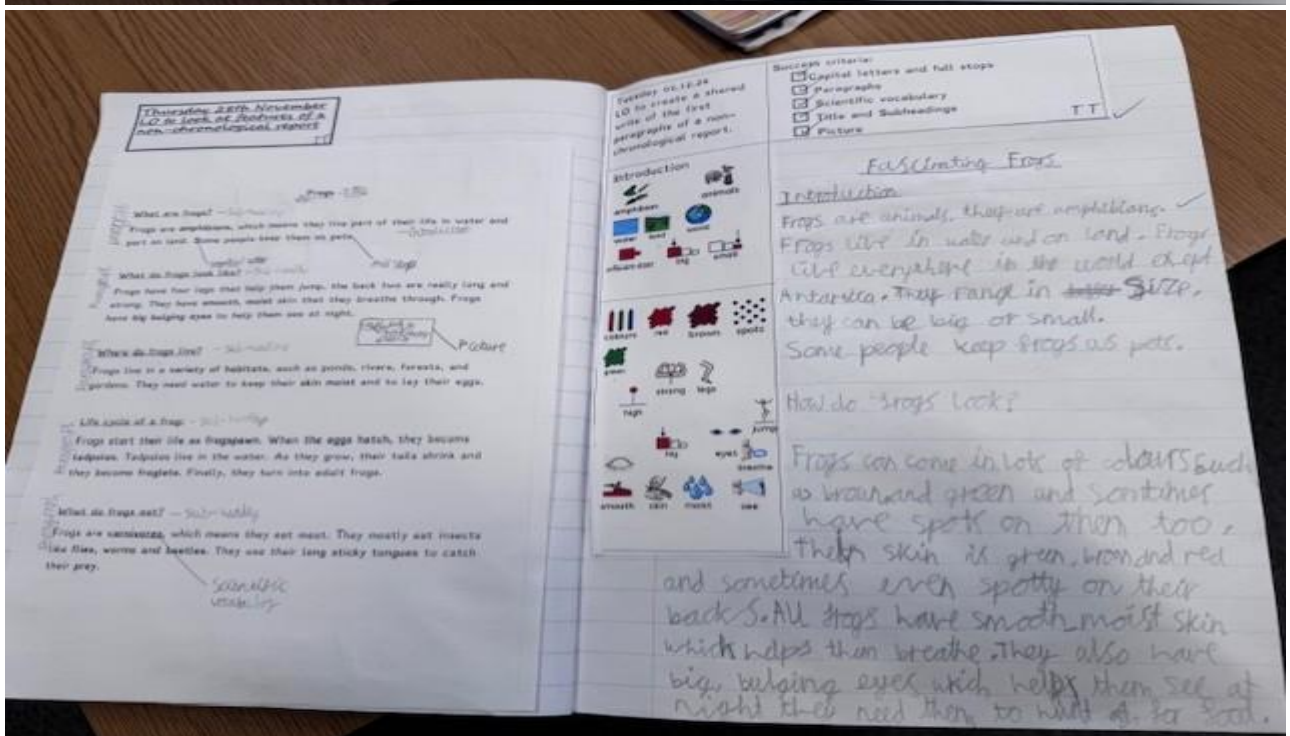 Thursday 28th November
LO to look at features of a
non-chronological report
TT
Frogs
What are frogs?
Frogs are amphibians, which means they live part of their life in water and
part on land. Some people keep them as pets.
What do frogs look like?
Frogs have four legs that help them jump, the back two are really long and
strong. They have smooth, moist skin that they breathe through. Frogs
have big bulging eyes to help them see at night.
Picture
Where do frogs live?
Frogs live in a variety of habitats, such as ponds, rivers, forests, and
gardens. They need water to keep their skin moist and to lay their eggs.
Life cycle of a frog
Frogs start their life as frogspawn. When the eggs hatch, they become
tadpoles. Tadpoles live in the water. As they grow, their tails shrink and
they become froglets. Finally, they turn into adult frogs.
What do frogs eat?
Frogs are carnivores, which means they eat meat. They mostly eat insects
like flies, worms and beetles. They use their long sticky tongues to catch
their prey.
Scientific
Tuesday 03.12.24
LO to create a shared
write of the first
paragraphs of a non-
chronological report.
Success criteria:
Capital letters and full stops
Paragraphs
Scientific vocabulary
Title and Subheadings
Picture
TT
Introduction
amphibian animals
water land world
big small
colours red brown spots
green
strong legs
high
jump
big eyes
breathe
smooth skin moist see
Fascinating Frogs
Introduction
Frogs are animals, they are amphibians.
Frogs live in water and on land. Frogs
live everywhere in the world exept
They range in size,
they can be big or small.
Some people keep frogs as pets.
How do frogs look?
Frogs can come in lots of colours such
as brown and green and
have spots on them too.
skin is green, and red
and sometimes even spotty on their
backs. All frogs have smooth moist skin
which helps them breathe. They also have
big, bulging eyes wich helps them see at
night they need them to for food.